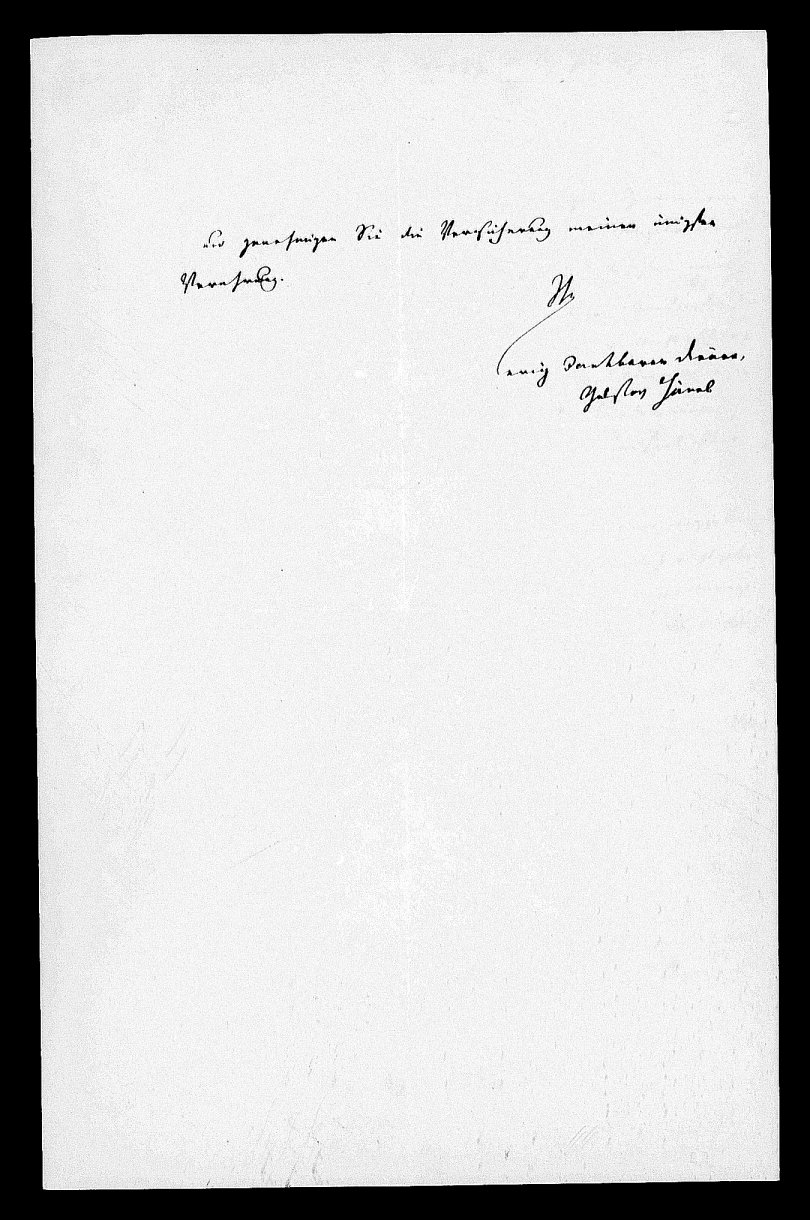 und genehmigen Sie die Versicherung meiner innigsten
Verehrung.
Ihr
ewig dankbarer
Gustav Hänel